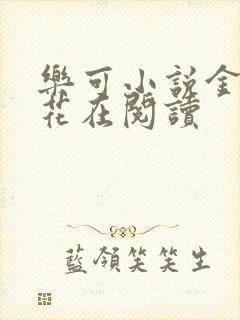 樂可小說金
花在閱讀
藍領笑笑生